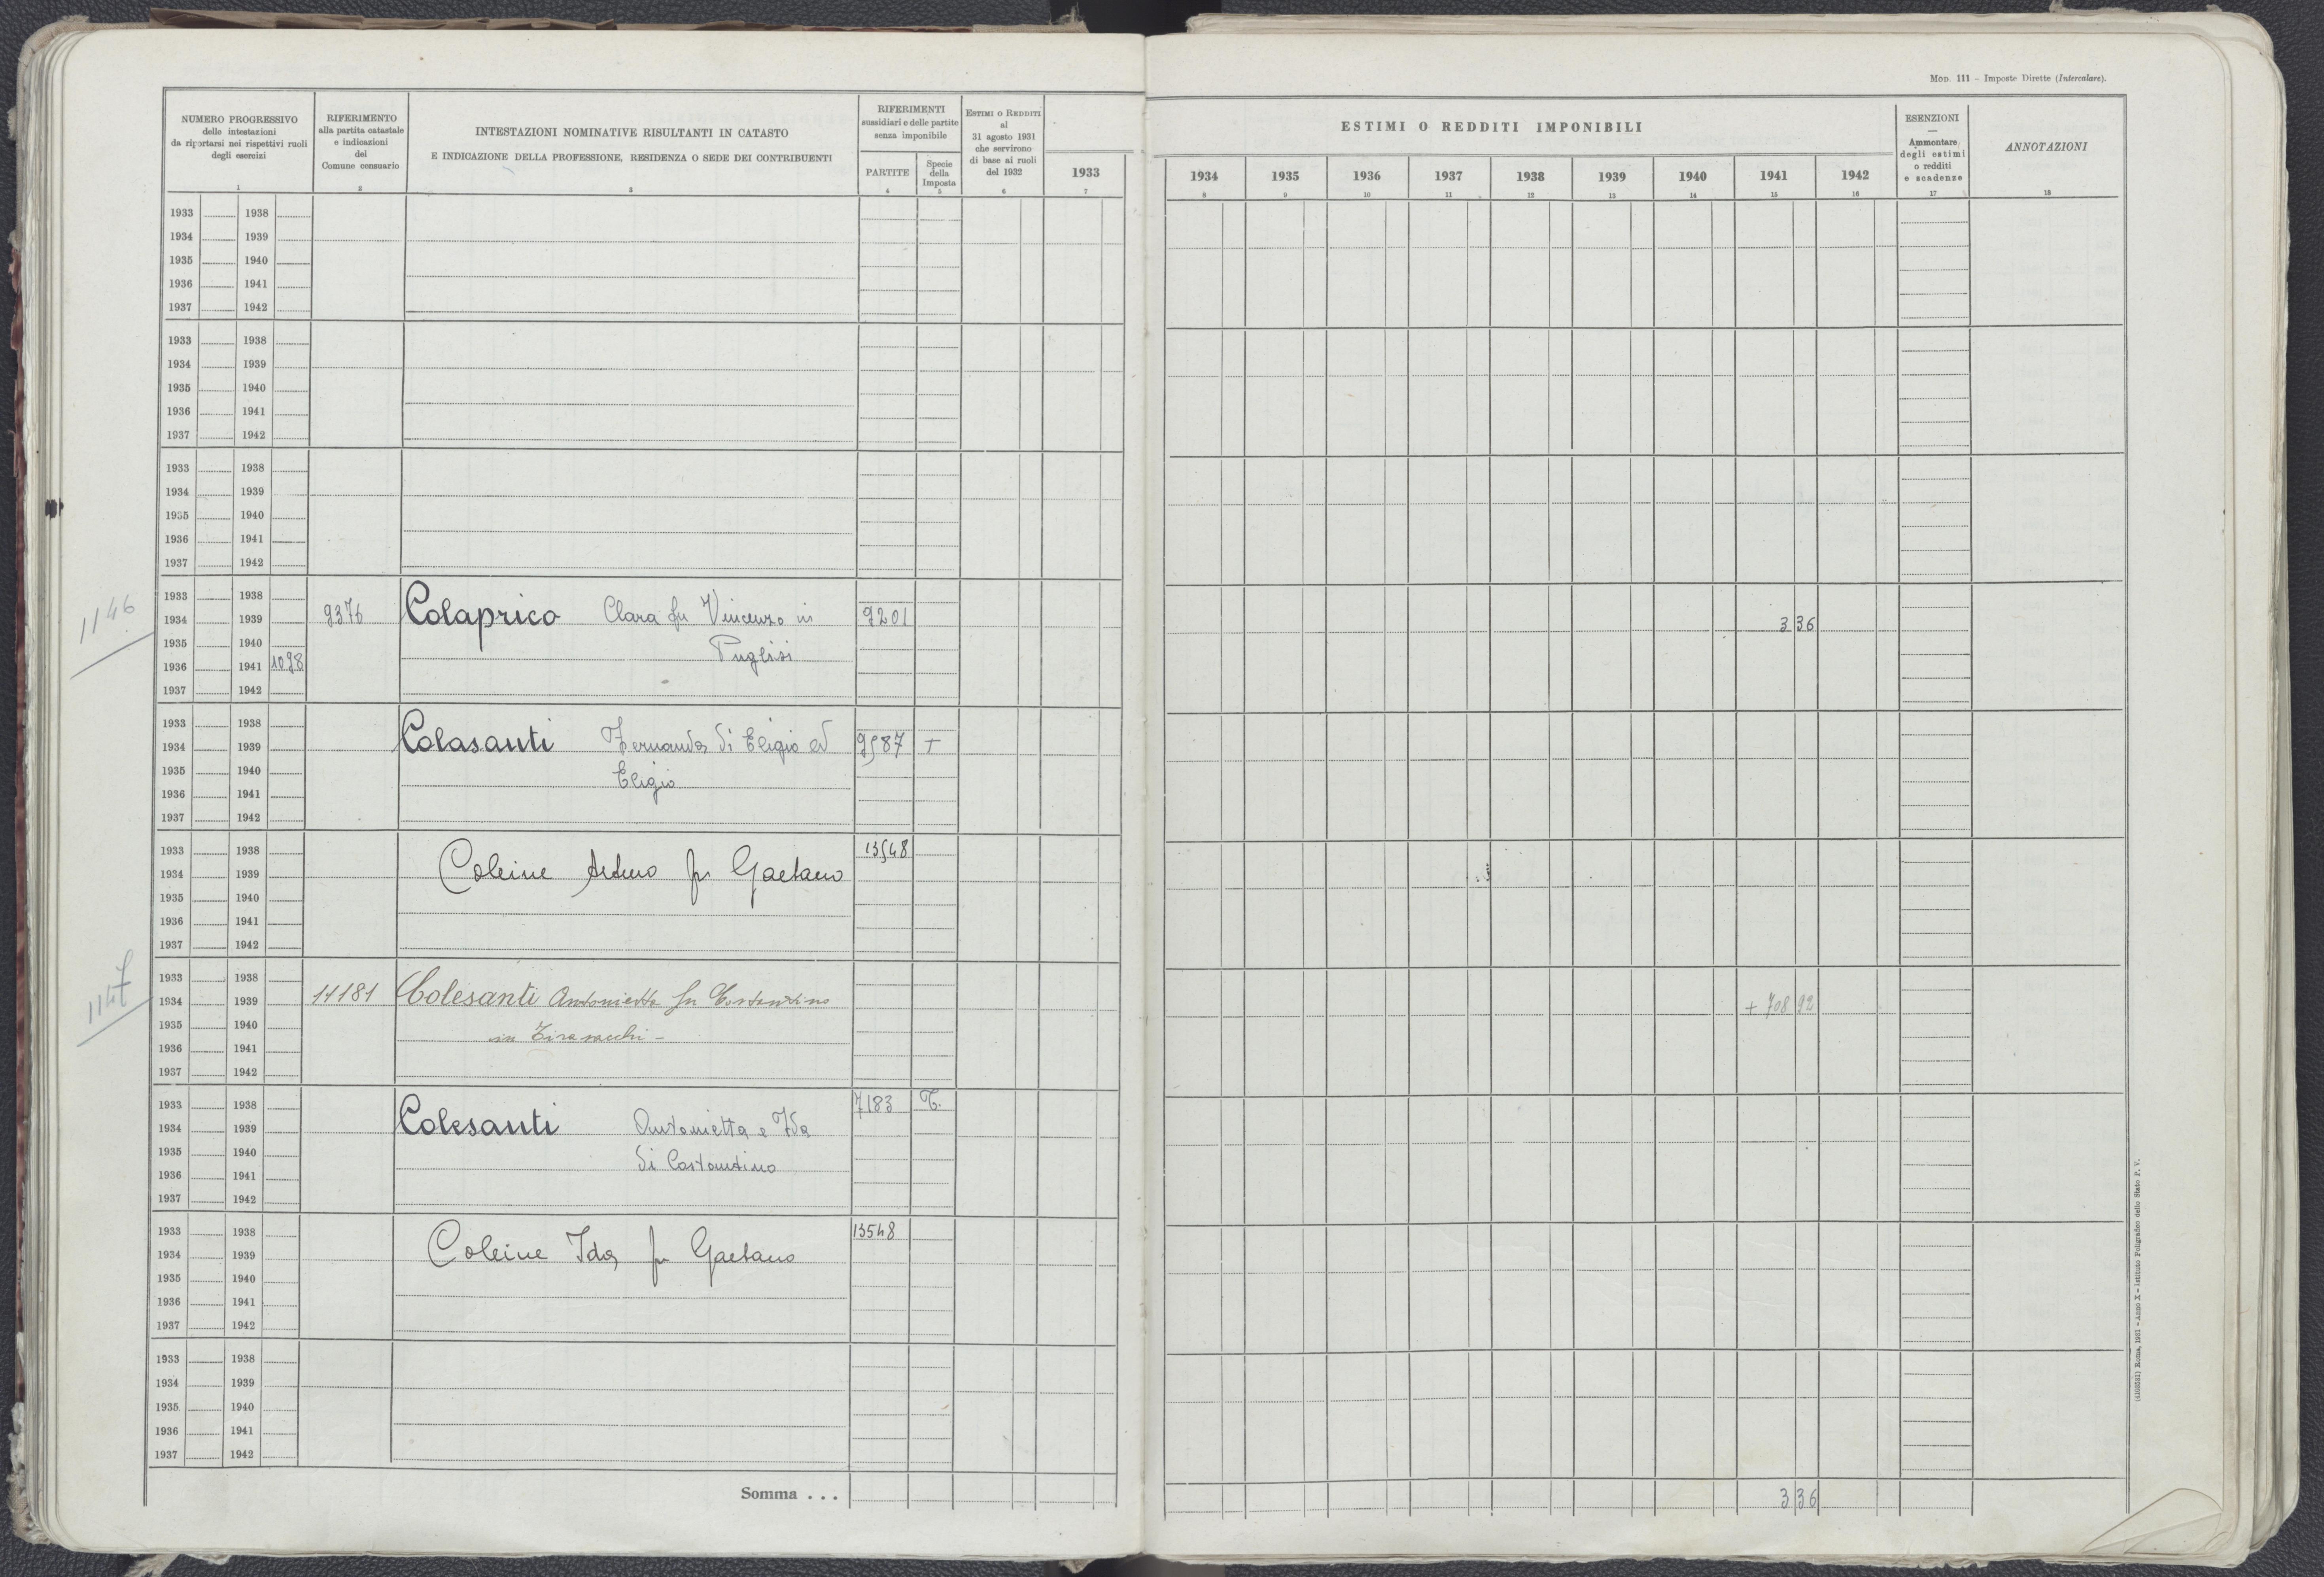 Mod. 111 - Imposte Dirette (Intercalare).
NUMERO PROGRESSIVO
delle intestazioni
da riportarsi nei rispettivi ruoli
degli esercizi
1
RIFERIMENTO
alla partita catastale
e indicazioni
del
Comune censuario
2
INTESTAZIONI NOMINATIVE RISULTANTI IN CATASTO
E INDICAZIONE DELLA PROFESSIONE, RESIDENZA O SEDE DEI CONTRIBUENTI
3
RIFERIMENTI
sussidiari e delle partite
senza imponibile
PARTITE
4
Specie
della
Imposta
5
ESTIMI O REDDITI
al
31 agosto 1931
che servirono
di base ai ruoli
del 1932
6
1933
7
ESTIMI O REDDITI IMPONIBILI
1934 1935 1936 1937 1938 1939 1940 1941 1942
8 9 10 11 12 13 14 15 16
ESENZIONI
—
Ammontare
degli estimi
o redditi
e scadenze
17
ANNOTAZIONI
18
1933 1938
1934 1939
1935 1940
1936 1941
1937 1942
1933 1938
1934 1939
1935 1940
1936 1941
1937 1942
1933 1938
1934 1939
1935 1940
1936 1941
1937 1942
1146
1933 1938
1934 1939 9376 Colaprico Clara fu Vincenzo in 9201 3 36
1935 1940 Puglisi
1936 1941 1098
1937 1942
1933 1938
1934 1939 Colasanti Fernanda di Eligio ed 9587 T
1935 1940 Eligio
1936 1941
1937 1942
1933 1938 13548
1934 1939 Coleine Arturo fu Gaetano
1935 1940
1936 1941
1937 1942
1147
1933 1938
1934 1939 11181 Colesanti Antonietta fu Costantino + 708 92
1935 1940 in
1936 1941
1937 1942
1933 1938 7183 T.
1934 1939 Colesanti Antonietta e Ida
1935 1940 di Costantino
1936 1941
1937 1942
1933 1938 13548
1934 1939 Coleine Ida fu Gaetano
1935 1940
1936 1941
1937 1942
1933 1938
1934 1939
1935 1940
1936 1941
1937 1942
Somma . . . 3 36
(4103531) Roma, 1931 - Anno X - Istituto Poligrafico dello Stato P. V.